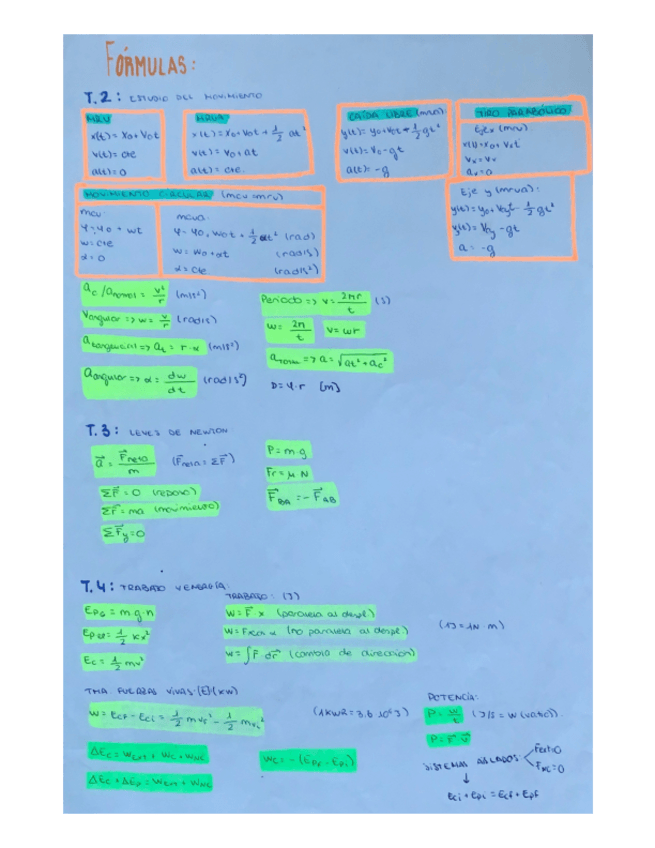 FÓRMULAS:
T.2: ESTUDIO DEL MOVIMIENTO
MRU
x(t)= x0+v0t
v(t)= cte
a(t)= 0
MRUA
x(t)= x0+v0t + 1/2 at²
v(t)= v0+at
a(t)= cte.
CAÍDA LIBRE (mrua)
y(t)= y0+v0t + 1/2 gt²
v(t)= v0-gt
a(t)= -g
TIRO PARABÓLICO
Eje x (mru)
x(t)=x0+vxt
vx=vx
ax=0
Eje y (mrua):
y(t)= y0+v0yt - 1/2 gt²
y(t)= v0y -gt
a= -g
MOVIMIENTO CIRCULAR (mcu =mru)
mcu:
φ=φ0 + wt
w= cte
α= 0
mcua:
φ= φ0+w0t + 1/2 αt² (rad)
w= w0+αt (rad/s)
α= cte (rad/s²)
ac /anormal = v²/r (m/s²)
Vangular => w = v/r (rad/s)
atangencial => at = r·α (m/s²)
aangular => α = dw/dt (rad/s²)
Periodo => v = 2πr/t (s)
w= 2π/t v= wr
aTOTAL => a= √at²+ac²
D= φ·r (m)
T.3: LEYES DE NEWTON
a = Fneta/m (Fneta = ΣF)
ΣF = 0 (reposo)
ΣF = ma (movimiento)
ΣFy=0
P= m·g
Fr= μ N
FBA = - FAB
T.4: TRABAJO Y ENERGÍA:
EPG = m·g·h
EPel= 1/2 Kx²
Ec= 1/2 mv²
TRABAJO: (J)
W= F·x (paralela al despl.)
W= Fxcos α (no paralela al despl.)
W= ∫F·dr (cambia de dirección)
(1J=1N·m)
TMA FUERZAS VIVAS: (E)(KW)
W= Ecf - Eci = 1/2 mvf² - 1/2 mv0²
(1KWh= 3,6·10⁶J)
ΔEc= Wext + Wc + WNC
ΔEc + ΔEp = Wext + WNC
Wc= -(Epf - Epi)
POTENCIA:
P= W/t (J/s= W (vatio)).
P= F·v
SISTEMAS AISLADOS
Fext=0
FNC=0
Eci + Epi = Ecf + Epf